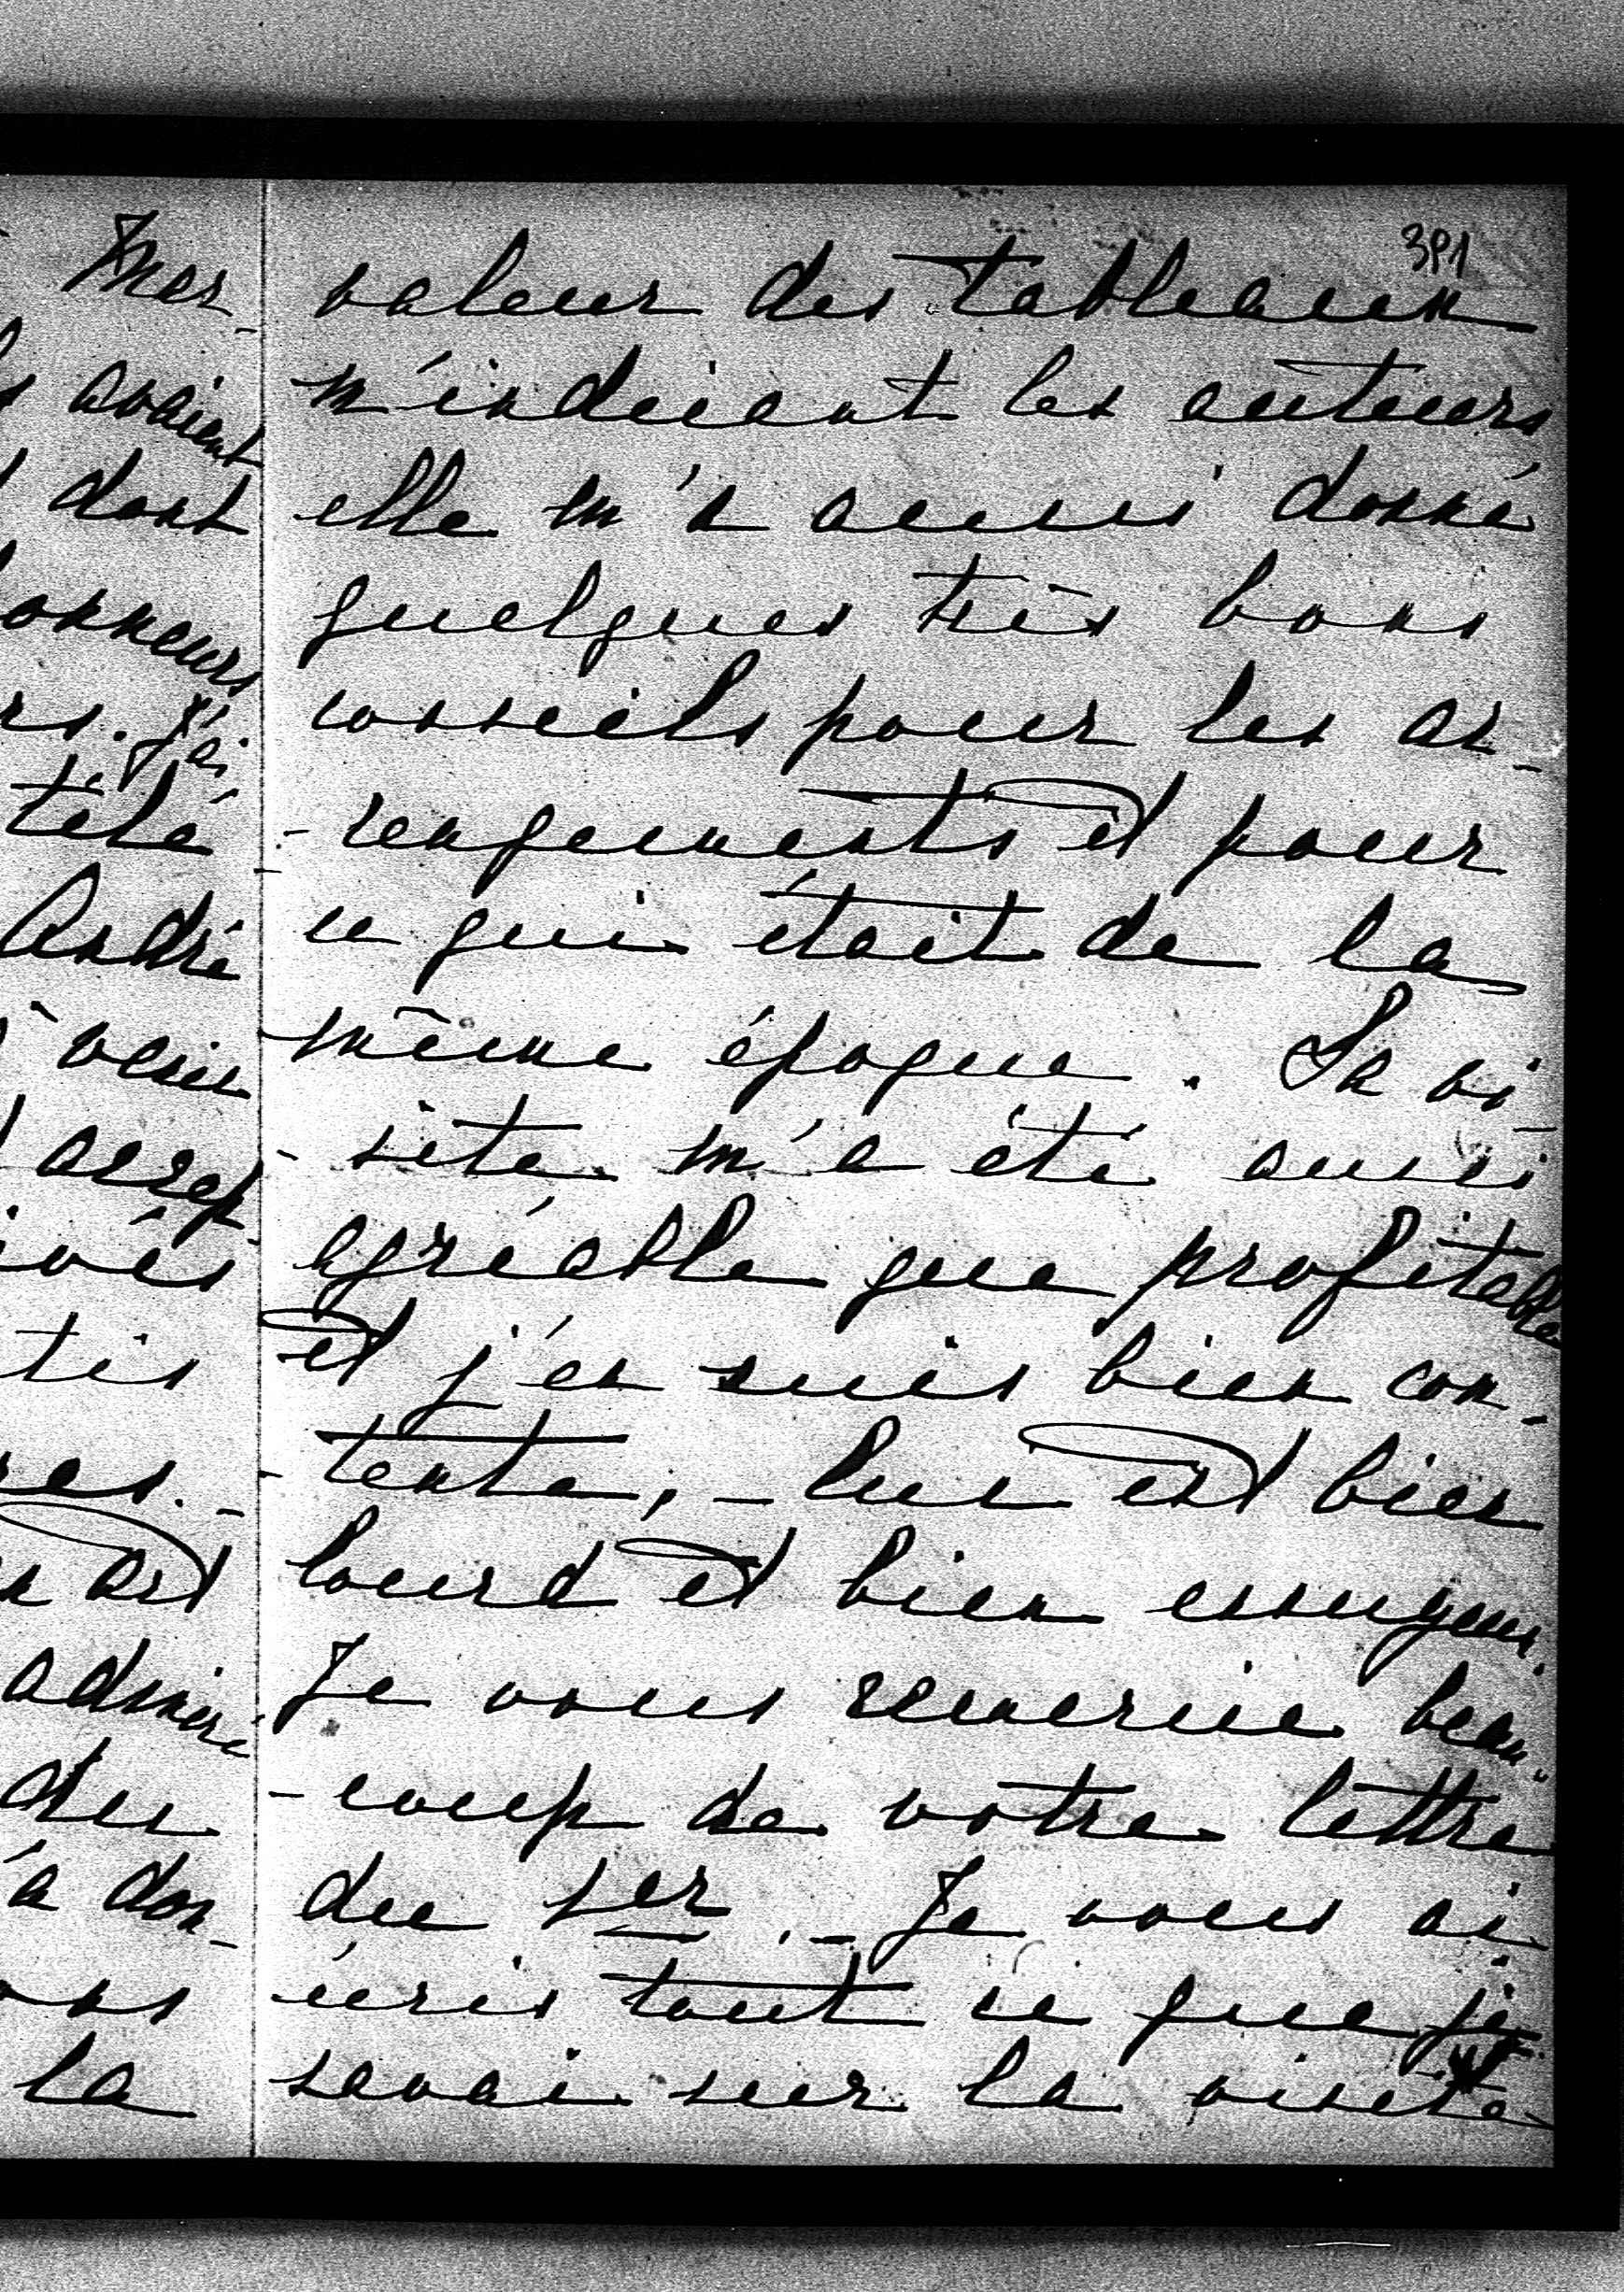 381
Mer-
avaient
dont
onneurs
rs. J'ai
télé-
André
venir
accep-
ivés
tis
res. -
art
admiré
du
'a don-
ons
la
valeur des tableaux
m'indiquant les auteurs
elle m'a aussi donné
quelques très bons
conseils pour les ar-
-rangements et pour
ce qui était de la
même époque. Sa vi-
-site m'a été aussi
agréable que profitable
et j'en suis bien con-
-tente, - lui est bien
lourd et bien ennuyeux.
Je vous remercie beau-
-coup de votre lettre
du 1er. - Je vous ai
écris tout ce que je
savai sur la visite